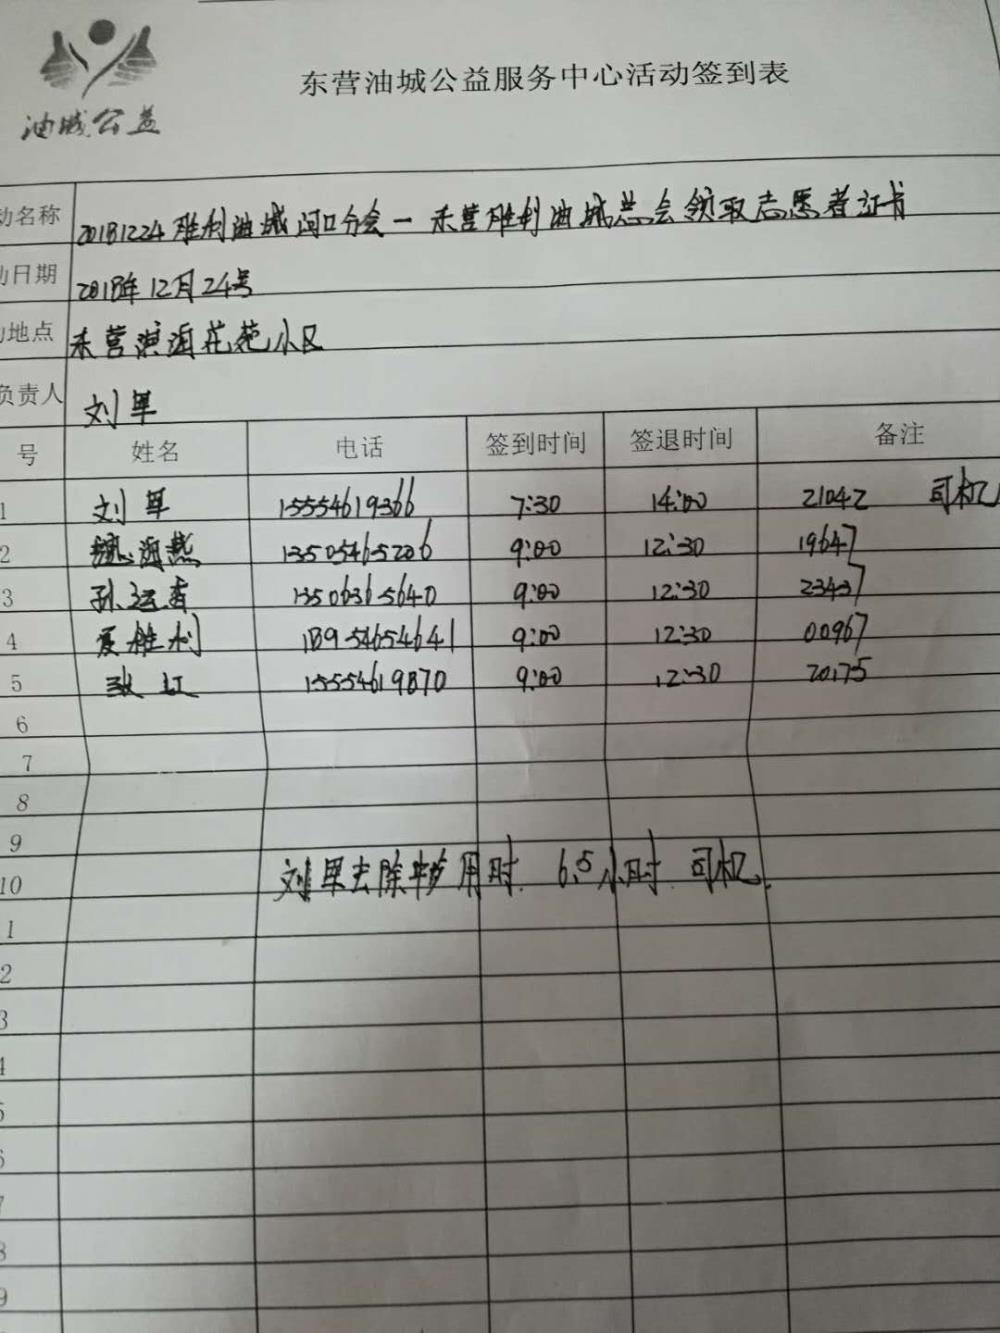 油城公益
东营油城公益服务中心活动签到表
动名称 20181224胜利油城河口分会一东营胜利油城总会领取志愿者证书
动日期 2018年12月24号
地点 东营滨海花苑小区
负责人 刘军
号 姓名 电话 签到时间 签退时间 备注
1 刘军 15554619366 7:30 14:00 21042 司机
2 魏海燕 13505465206 9:00 12:30 19647
3 孙运香 13506365640 9:00 12:30 23437
4 胜利 18954654641 9:00 12:30 00967
5 红 15554619870 9:00 12:30 20175
6
7
8
9
10 刘军去除 用时 6.5小时 司机.
1
2
3
4
5
6
7
8
9